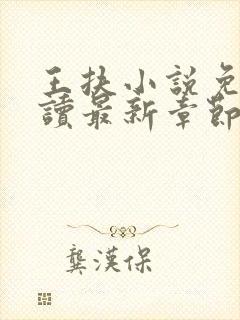 王扶小說免
讀最新章節
龔漢保